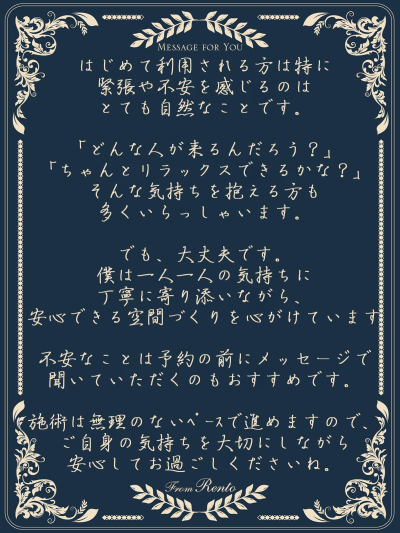 MESSAGE FOR YOU
はじめて利用される方は特に
緊張や不安を感じるのは
とても自然なことです。
「どんな人が来るんだろう？」
「ちゃんとリラックスできるかな？」
そんな気持ちを抱える方も
多くいらっしゃいます。
でも、大丈夫です。
僕は一人一人の気持ちに
丁寧に寄り添いながら、
安心できる空間づくりを心がけています
不安なことは予約の前にメッセージで
聞いていただくのもおすすめです。
施術は無理のないﾍﾟｰｽで進めますので、
ご自身の気持ちを大切にしながら
安心してお過ごしくださいね。
From Rento